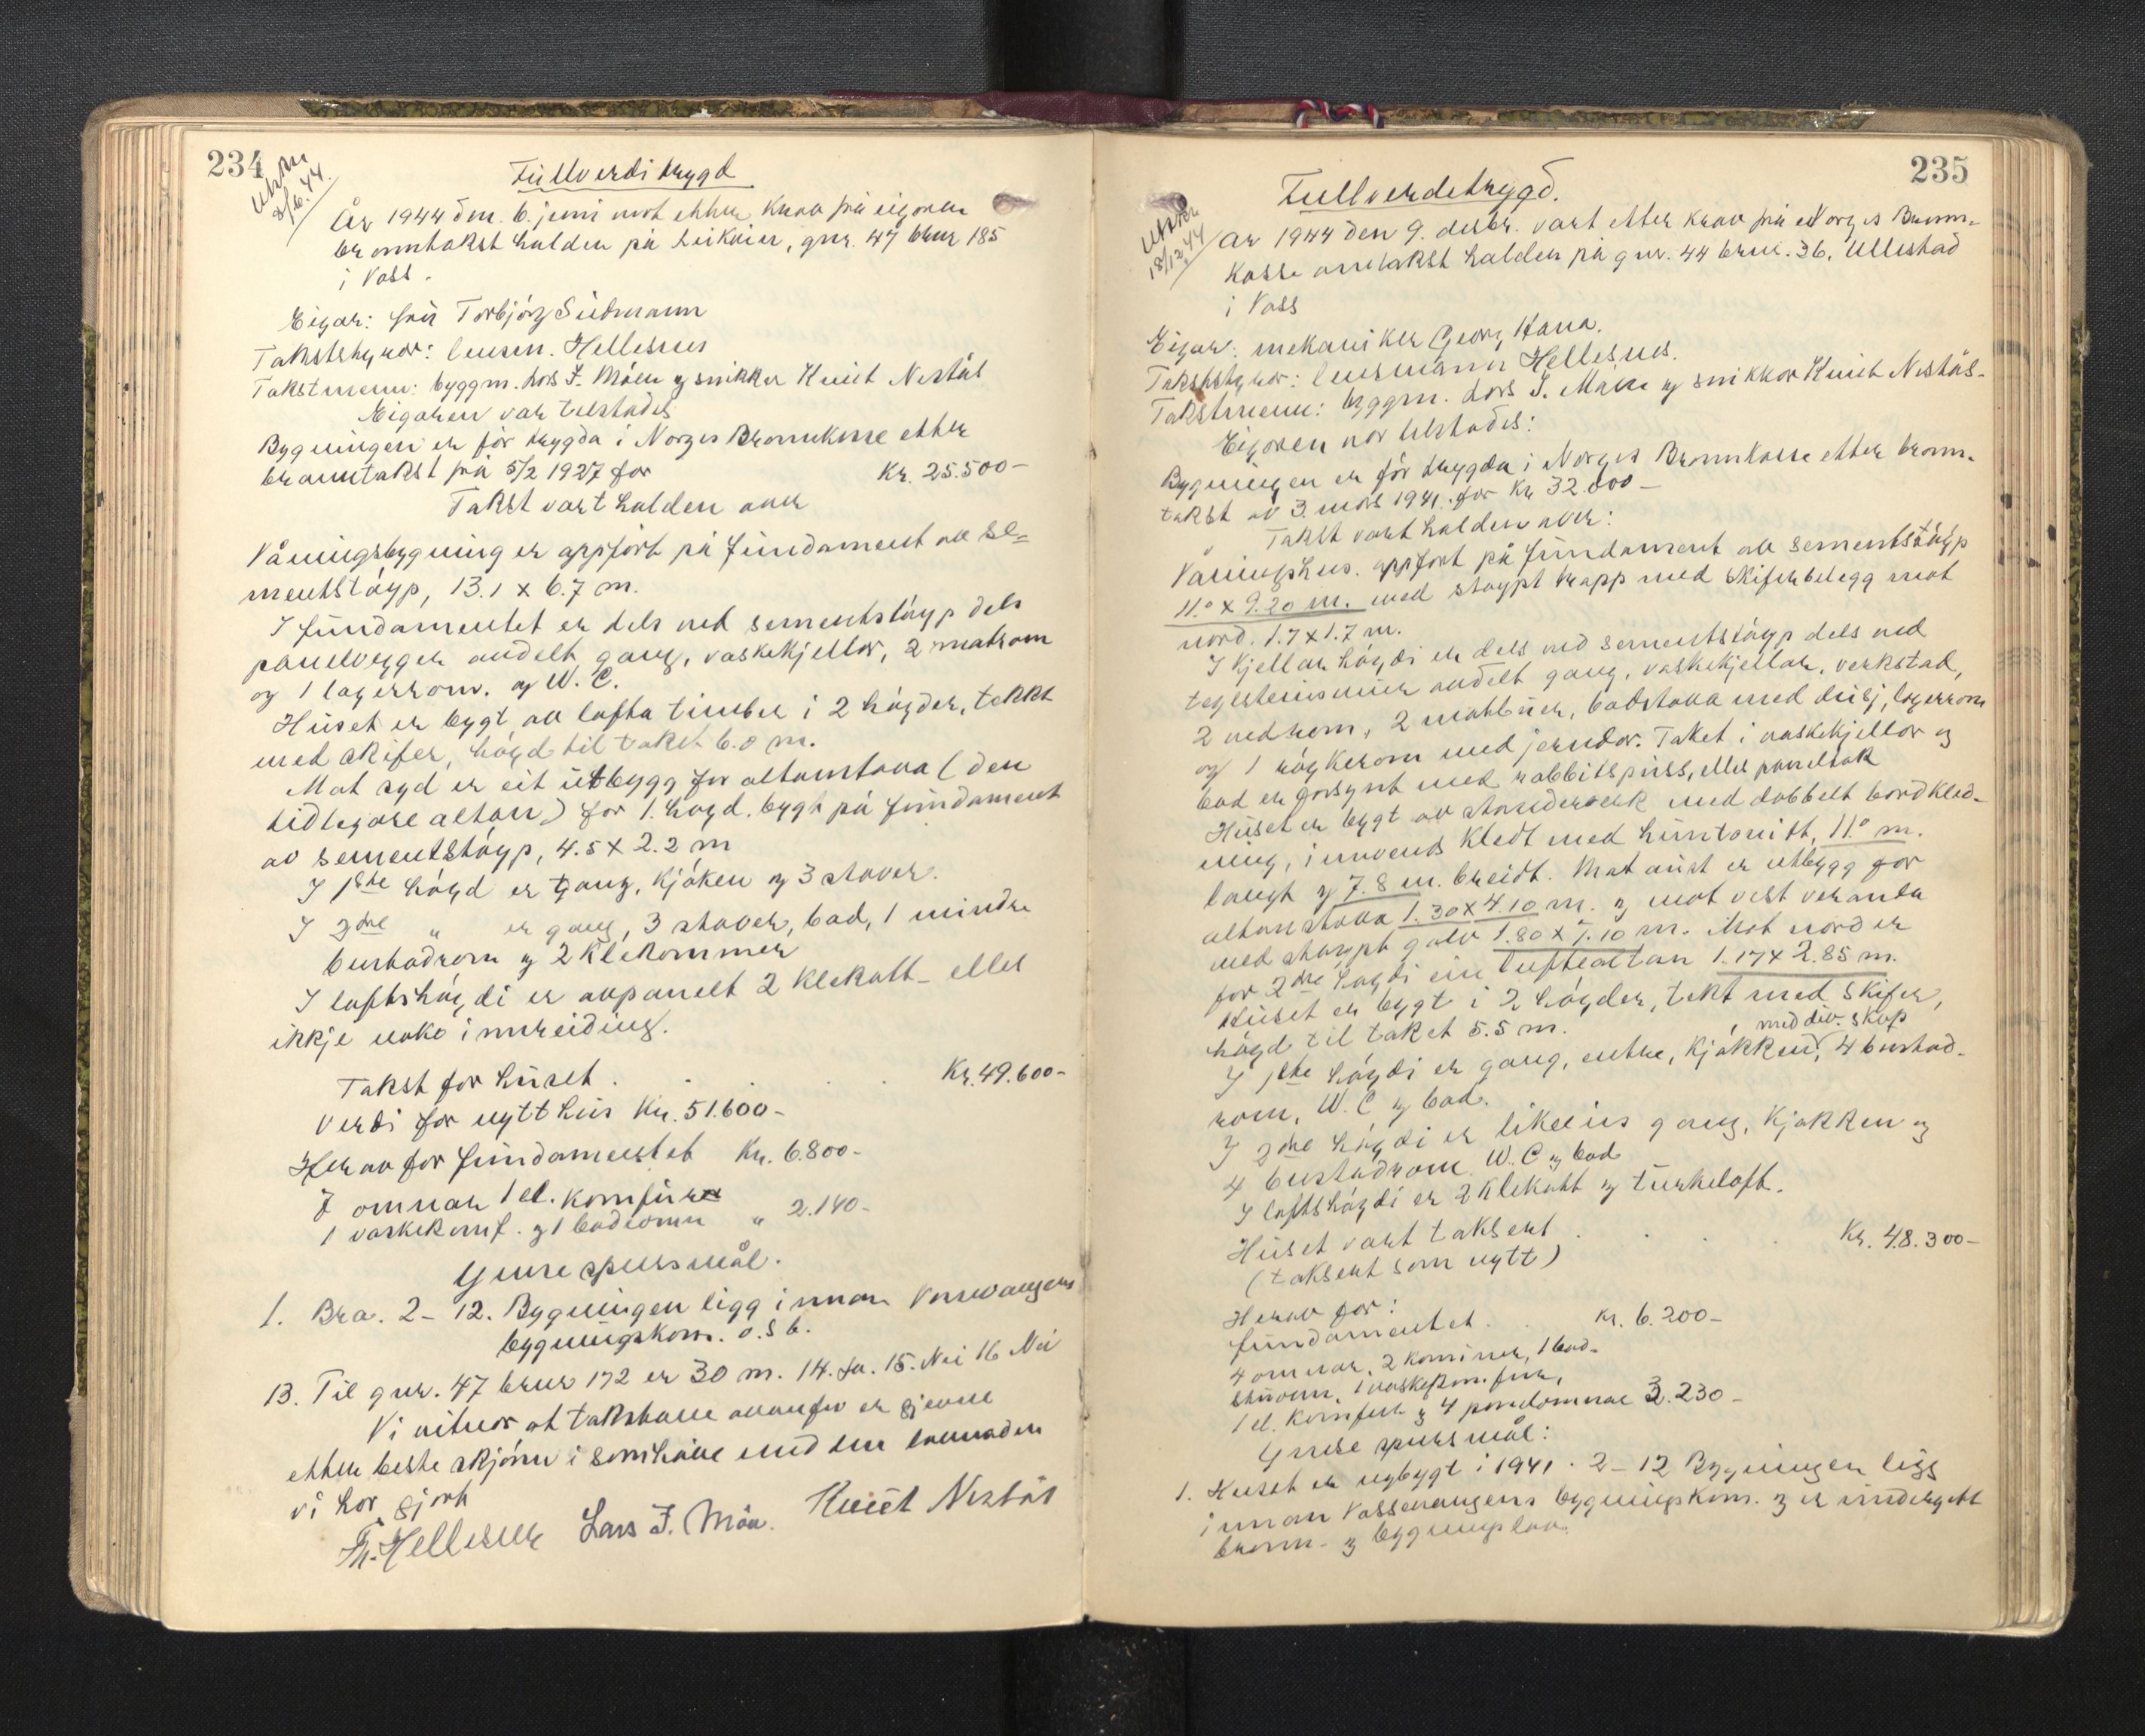 234
Utskr.
8/6.44.
Fullverditrygd
År 1944 den 6. juni vart etter krav frå eigaren
branntakst halden på Leikvier, gnr. 47 bknr 185
i Voss.
Eigar: frú Torbjørg Sübmann
Takststyrar: lensm. Hellesnes
Takstmenn: byggm. Lars J. Møen og snikkar Knút Nestås
Eigaren var tilstades
Bygningen er fór trygda i Norges Brannkasse etter
branntakst frå 5/2 1927 for Kr. 25.500-
Takst vart halden over
Våningsbygning er oppfort på fúndament av se-
mentstóyp, 13.1 x 6.7 m.
I fúndamentet er dels med sementstóyp dels
panelvegger avdelt gang, vaskekjellar, 2 matrom
og 1 lagerrom. og W.C.
Húset er bygt av lafta timber i 2 högder, tekkt
med skifer, högd til taket 6.0 m.
Mot syd er eit útbygg for altanstova (den
tidlegare altan) for 1. högd. bygt på fúndament
av sementstóyp, 4.5 x 2.2 m
I 1ste högd er gang, kjöken og 3 stover.
I 2dre " er gang, 3 stover, bad, 1 mindre
bustadrom og 2 klekommer
I loftshögdi er avpanelt 2 klekott - elles
ikkje noko innreiding.
Takst for húset . . . . Kr. 49.600-
Verdi for nytt hús Kr. 51.600-
Herav for fúndamentet Kr. 6.800-
7 omnar 1 el. komfúr
1 vaskekomf. og 1 badeomn " 2.140-
Ymse spursmål.
1. Bra. 2-12. Bygningen ligg innan Vossevangens
bygningskom. o.s b.
13. Til gnr. 47 bknr 172 er 30 m. 14. Ja. 15. Nei 16 Nei
Vi vitnar at takstane ovanfor er gjevne
etter beste skjönn i samhöve med den lovnaden
vi har gjort
Th. Hellesnes Lars J. Möen. Knút Nestås
235
Utskr.
18/12.44
Fullverdetrygd.
Ar 1944 den 9. desbr. vart etter krav frå Norges Brann-
kasse omtakst halden på gnr. 44 bknr. 36, Ullestad
i Voss
Eigar: mekaniker Georg Hana.
Takststyrar: lensmann Hellesnes.
Takstmenn: byggm. Lars J. Møen og snikkar Knút Nestås-
Eigaren var tilstades:
Bygningen er fór trygda i Norges Brannkasse etter brann-
takst av 3. mars 1941. for Kr 32.000-
Takst vart halden over:
Våningshus. oppfort på fúndament av sementstóyp
11.0 x 9.20 m. med stoypt trapp med skiferbelegg mot
nord. 1.7 x 1.7 m.
I kjellarhögdi er dels med sementstóyp dels med
teglsteinsmúr avdelt gang, vaskekjellar, verkstad,
2 vedrom, 2 matbúer, badstova med dusj, lagerrom
og 1 röykerom med jerndor. Taket i vaskekjellar og
bad er forsynt med rabbitspúss, elles paneltak
Húset er bygt av stenderverk med dobbelt bordkled-
ning, innvends kledt med huntonitt, 11.0 m.
langt og 7.8 m. breidt. Mot aúst er utbygg for
altanstova 1.30 x 4.10 m. og mot vest veranda
med stoypt golv 1.80 x 7.10 m. Mot nord er
for 2dre högdi ein luftealtan 1.17 x 2.85 m.
Húset er bygt i 2 högder, tekt med skifer,
högd til taket 5.5 m.
med div. skap
I 1ste högdi er gang, entre, kjökken, 4 bustad-
rom, W.C. og bad.
I 2dre högdi er likeeins gang, kjökken og
4 bustadrom. W.C og bad
I loftshögdi er 2 klekott og türkeloft.
Húset vart taksert . . . . Kr. 48.300-
(taksert som nytt)
Herav for:
fúndamentet . . Kr. 6.200-
4 omnar, 2 kaminer, 1 bad-
1 vaskekomfur,
1 el. komfur og 4 panelomnar 3.230-
Ymse spursmål:
1. Huset er nybygt i 1941. 2-12 Bygningen ligg
innan Vossevangens bygningskom. og er underlagt
brann- og bygningslov.